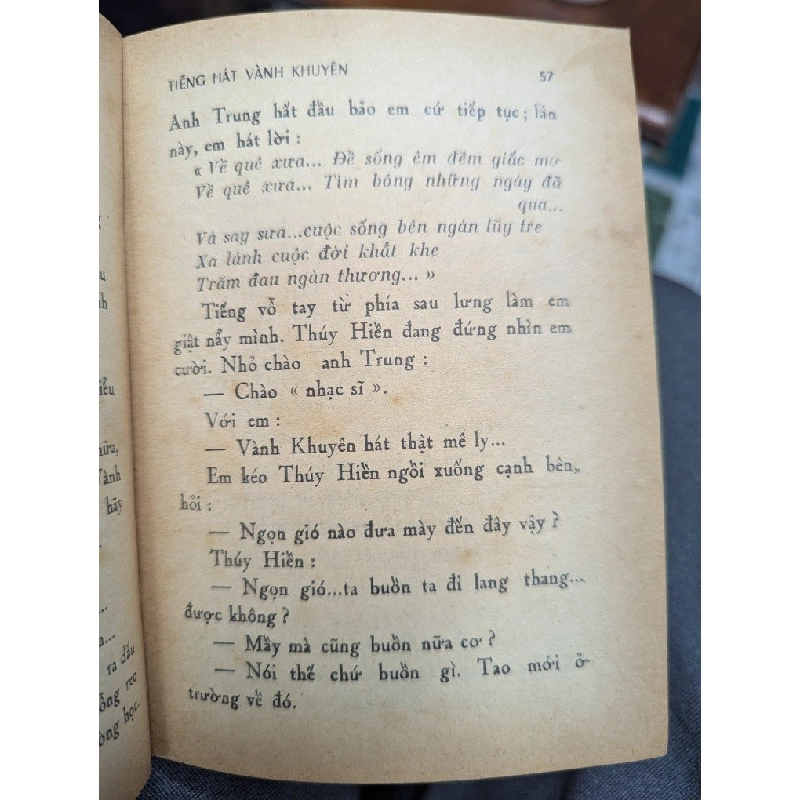 TIẾNG HÁT VÀNH KHUYÊN 57
Anh Trung hất đầu bảo em cứ tiếp tục; lần
này, em hát lời :
« Về quê xưa... Để sống êm đềm giấc mơ
Về quê xưa... Tìm bóng những ngày đã
qua...
Và say sưa...cuộc sống bên ngàn lũy tre
Xa lánh cuộc đời khắt khe
Trăm đau ngàn thương... »
Tiếng vỗ tay từ phía sau lưng làm em
giật nẩy mình. Thúy Hiền đang đứng nhìn em
cười. Nhỏ chào anh Trung :
— Chào « nhạc sĩ ».
Với em :
— Vành Khuyên hát thật mê ly...
Em kéo Thúy Hiền ngồi xuống cạnh bên,
hỏi :
— Ngọn gió nào đưa mày đến đây vậy ?
Thúy Hiền :
— Ngọn gió...ta buồn ta đi lang thang...
được không ?
— Mầy mà cũng buồn nữa cơ ?
— Nói thế chứ buồn gì. Tao mới ở
trường về đó.
iểu
hữa,
Vành
hãy
ra dấu